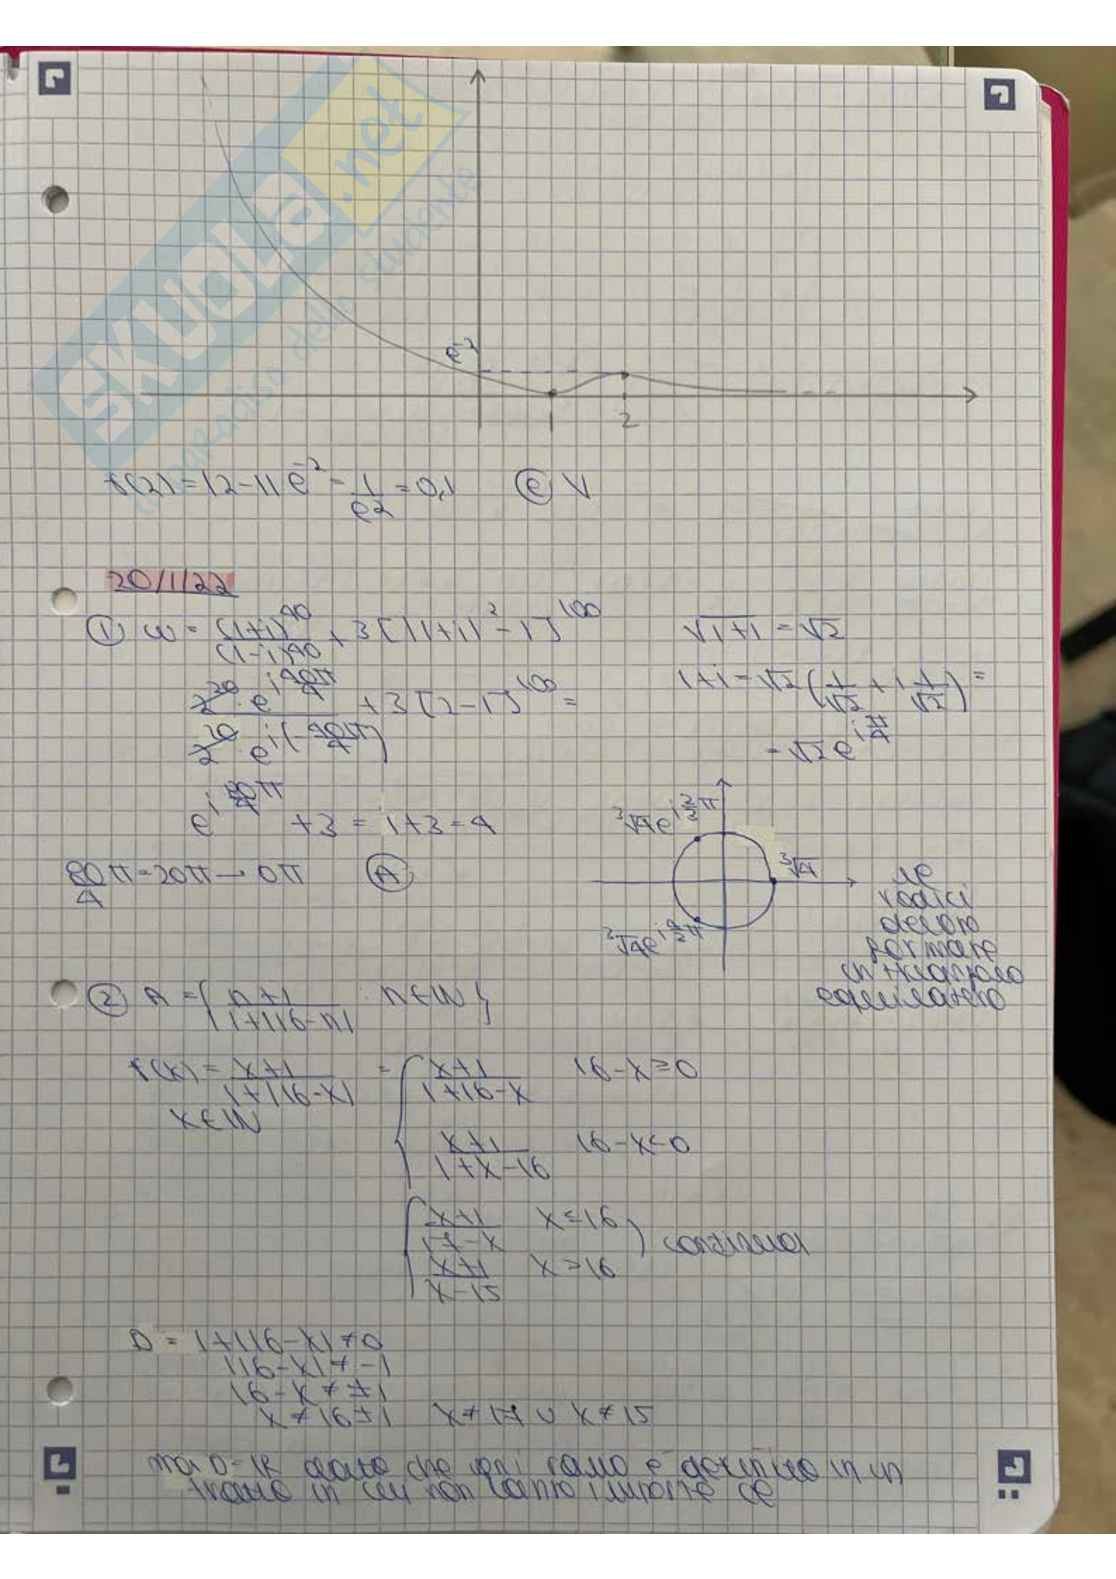 SKUOLA.net
e⁻²
1
2
f(2) = |2-1| e⁻² = 1/e² = 0,1 ⓔ V
20/1/22
① w = (1+i)⁴⁰/(1-i)⁴⁰ + 3[|1+i|² - 1]¹⁰⁰
√1+1 = √2
2²⁰ · e^(i 40π/4) / 2²⁰ · e^(i(-40π/4)) + 3[2-1]¹⁰⁰ =
1+i = √2 (1/√2 + i 1/√2) =
= √2 e^(i π/4)
e^(i 80/4 π) + 3 = 1+3 = 4
80/4 π = 20π → 0π Ⓐ
³√4 e^(i 2/3 π)
³√4
³√4 e^(i 4/3 π)
le
radici
devono
formare
un triangolo
equilatero
② A = { n+1 / 1+|16-n| : n ∈ ℕ }
f(x) = x+1 / 1+|16-x| = { x+1 / 1+16-x 16-x ≥ 0
x ∈ ℕ
x+1 / 1+x-16 16-x < 0
{ x+1 / 17-x x ≤ 16
x+1 / x-15 x > 16 ) continua
D = 1+|16-x| ≠ 0
|16-x| ≠ -1
16-x ≠ ±1
x ≠ 16±1 x ≠ 17 ∪ x ≠ 15
ma D = ℝ dato che ogni ramo è definito in un
tratto in cui non